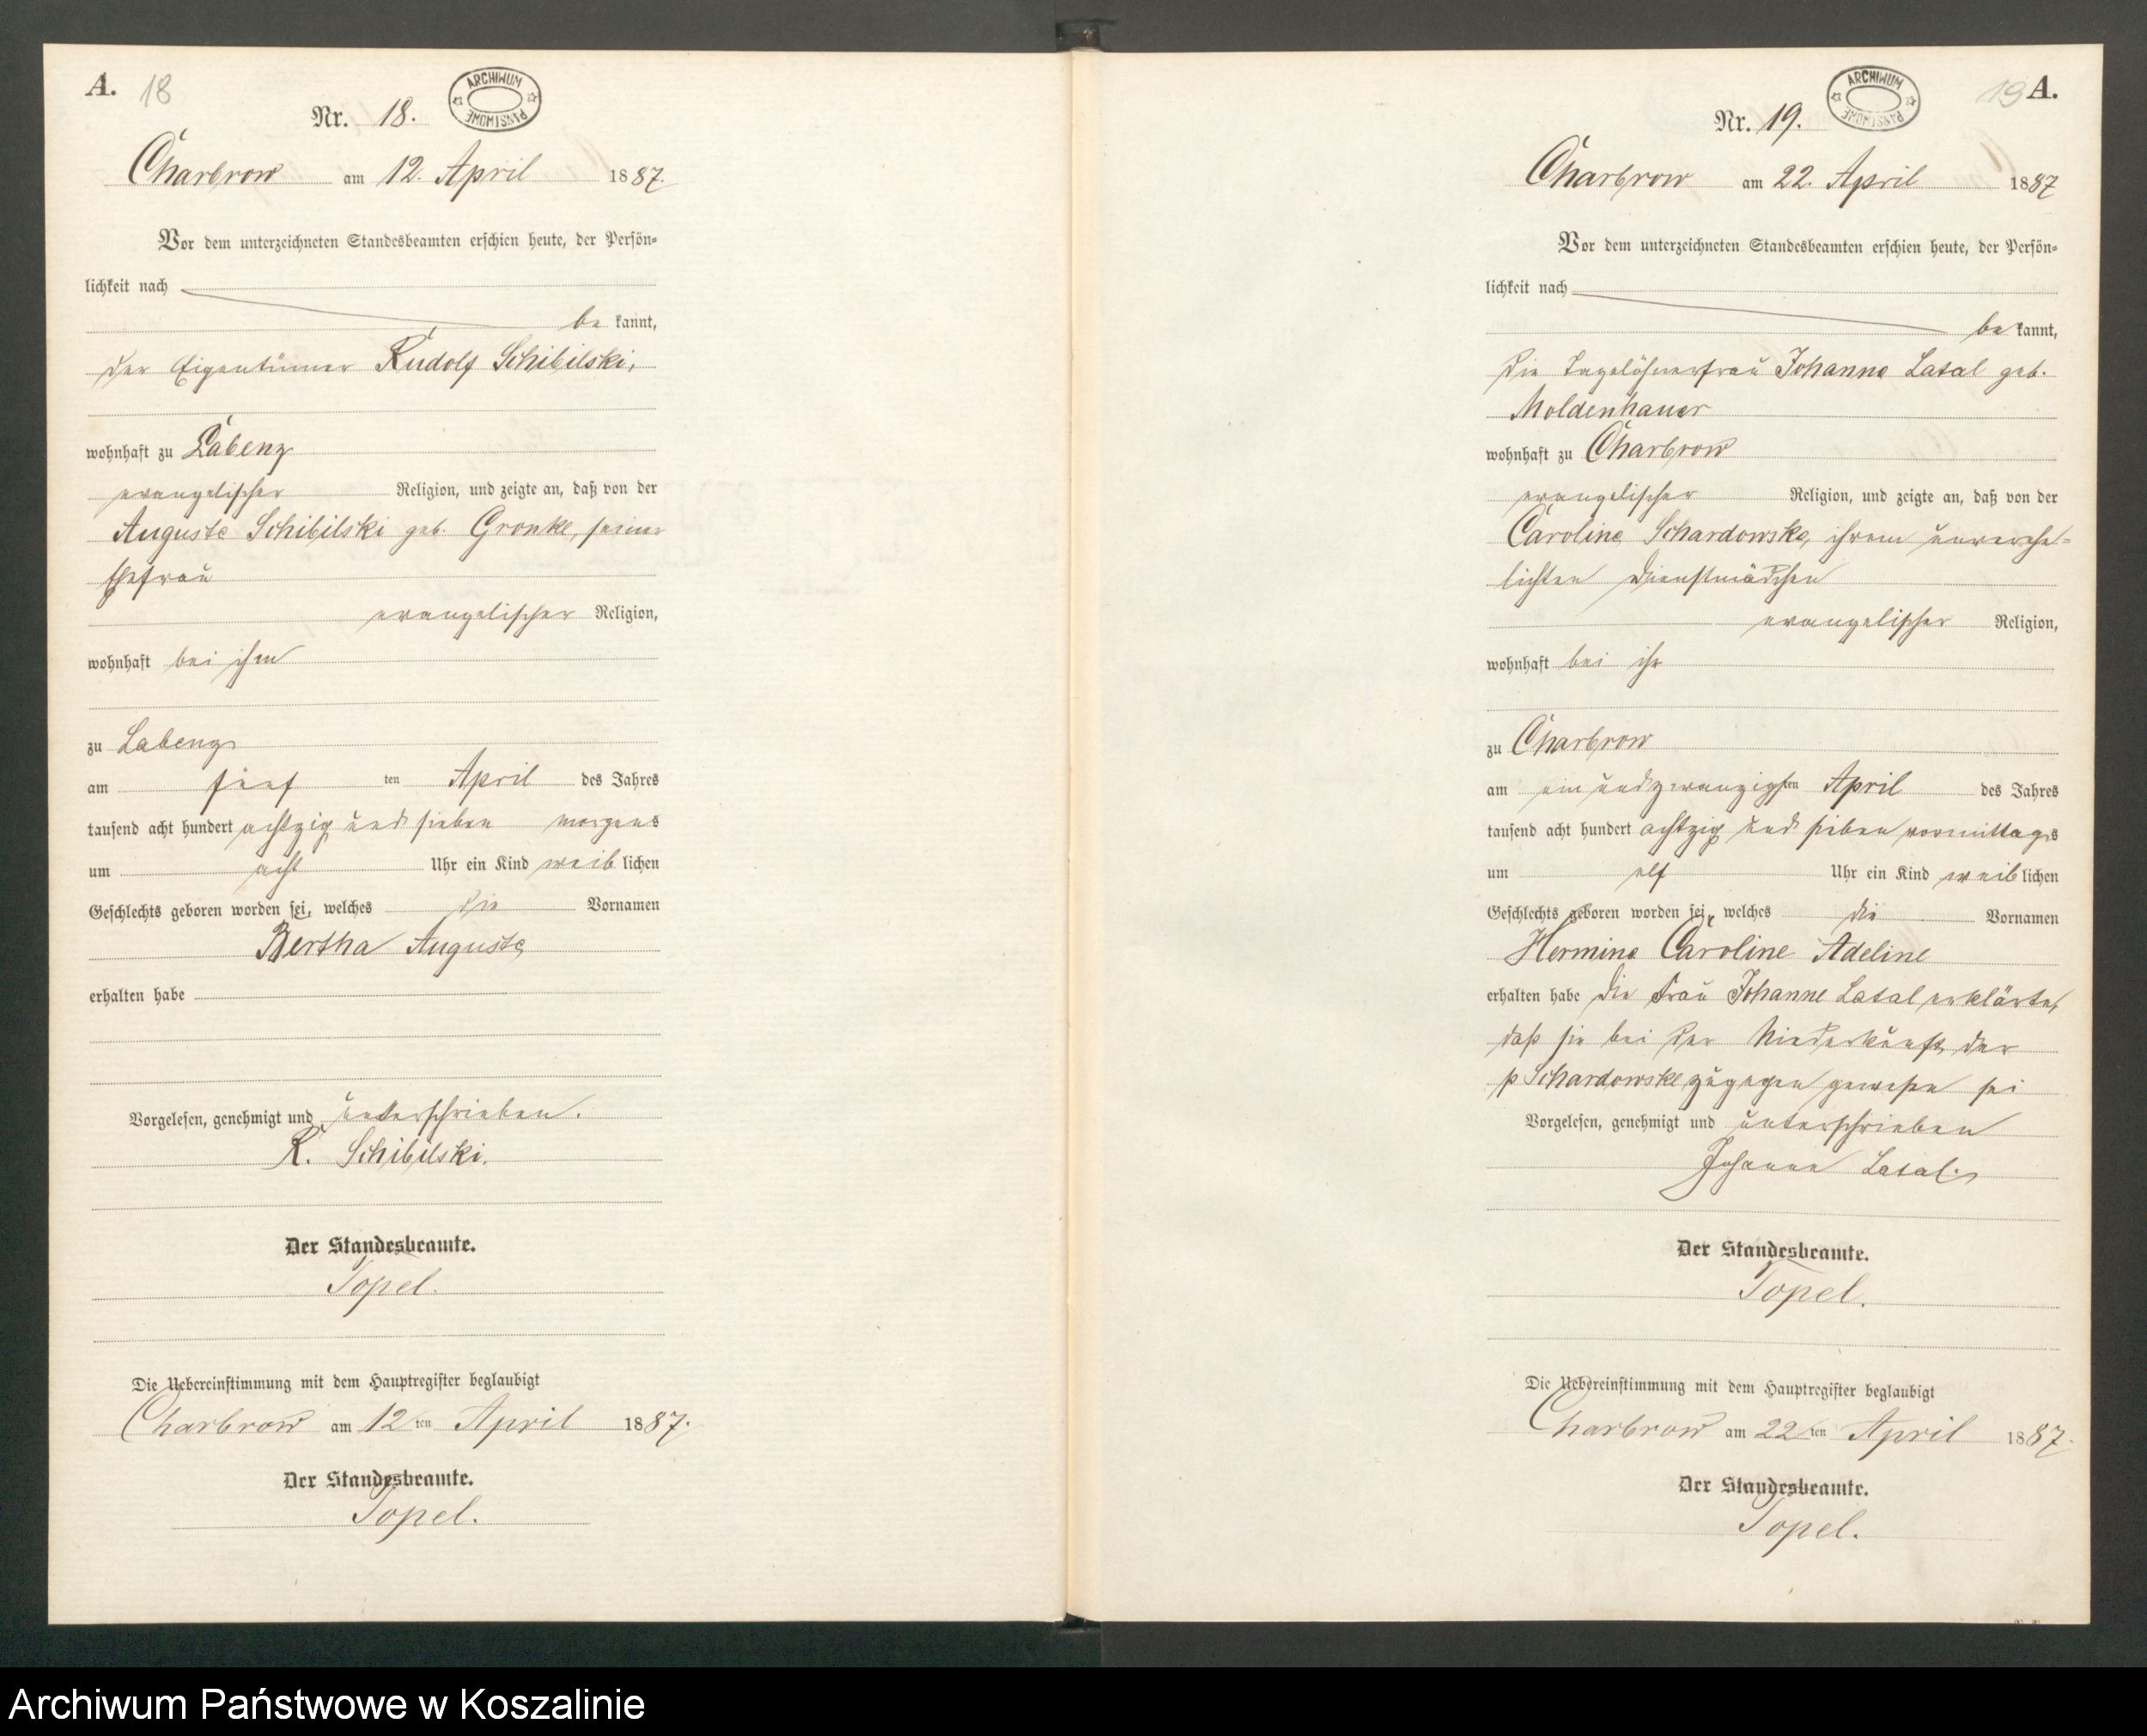 A. 18
ARCHIWUM PAŃSTWOWE
Nr. 18.
Charbrow am 12. April 1887.
Vor dem unterzeichneten Standesbeamten erschien heute, der Persön=
lichkeit nach
be kannt,
der Eigentümer Rudolf Schibilski,
wohnhaft zu Labenz
evangelischer Religion, und zeigte an, daß von der
Auguste Schibilski geb. Gronke, seiner
Ehefrau
evangelischer Religion,
wohnhaft bei ihm
zu Labenz
am fünf ten April des Jahres
tausend acht hundert achtzig und sieben morgens
um acht Uhr ein Kind weib lichen
Geschlechts geboren worden sei, welches die Vornamen
Bertha Auguste
erhalten habe
Vorgelesen, genehmigt und unterschrieben.
R. Schibilski.
Der Standesbeamte.
Topel.
Die Uebereinstimmung mit dem Hauptregister beglaubigt
Charbrow am 12 ten April 1887.
Der Standesbeamte.
Topel.
19 A.
ARCHIWUM PAŃSTWOWE
Nr. 19.
Charbrow am 22. April 1887
Vor dem unterzeichneten Standesbeamten erschien heute, der Persön=
lichkeit nach
be kannt,
die Tagelöhnerfrau Johanne Latal geb.
Moldenhauer
wohnhaft zu Charbrow
evangelischer Religion, und zeigte an, daß von der
Caroline Schardowske, ihrem unverehe=
lichten Dienstmädchen
evangelischer Religion,
wohnhaft bei ihr
zu Charbrow
am ein und zwanzigsten April des Jahres
tausend acht hundert achtzig und sieben vormittags
um elf Uhr ein Kind weib lichen
Geschlechts geboren worden sei, welches die Vornamen
Hermine Caroline Adeline
erhalten habe die Frau Johanne Latal erklärte,
daß sie bei der Niederkunft der
p Schardowske zugegen gewesen sei
Vorgelesen, genehmigt und unterschrieben
Johanne Latal.
Der Standesbeamte.
Topel.
Die Uebereinstimmung mit dem Hauptregister beglaubigt
Charbrow am 22 ten April 1887.
Der Standesbeamte.
Topel.
Archiwum Państwowe w Koszalinie